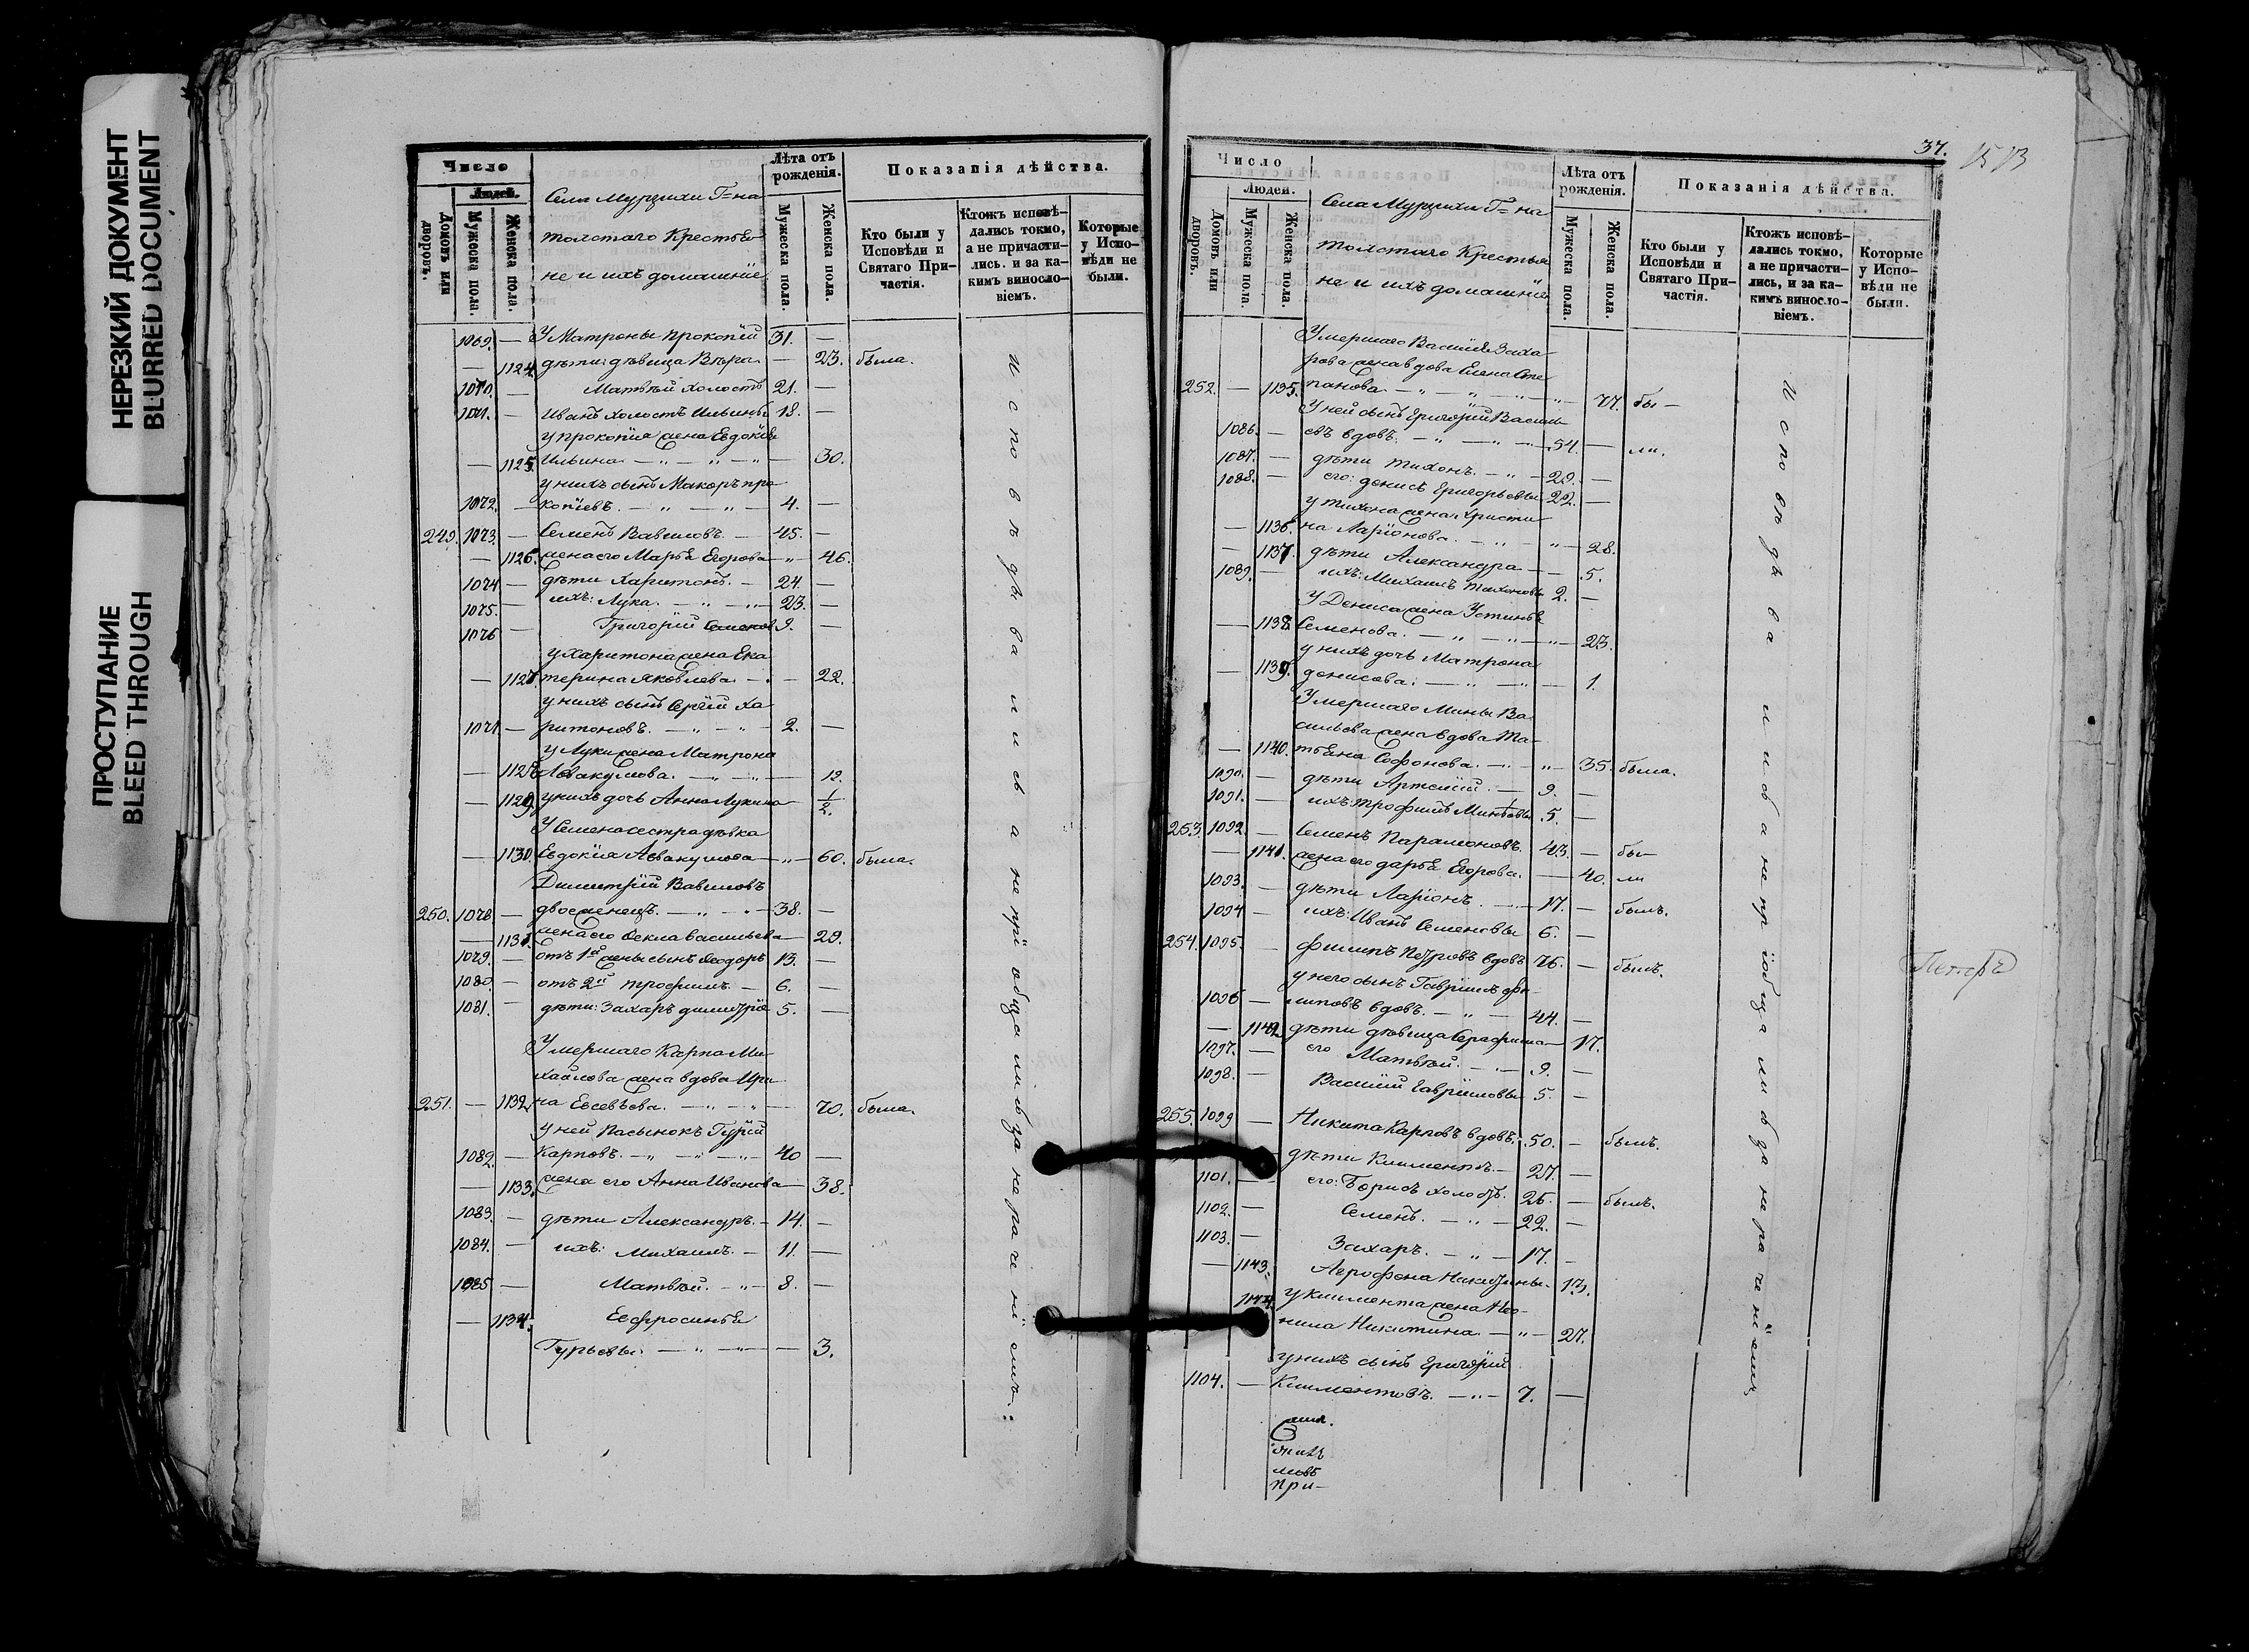 НЕРЕЗКИЙ ДОКУМЕНТ
BLURRED DOCUMENT
ПРОСТУПАНИЕ
BLEED THROUGH
Число
Людей.
Домовъ или дворовъ.
Мужеска пола.
Женска пола.
Села Мурзихи Г=на
толстаго Крестья
не и ихъ домашніе
Лѣта отъ рожденія.
Мужеска пола.
Женска пола.
Показанія дѣйства.
Кто были у Исповѣди и Святаго Причастія.
Ктожъ исповѣ-
дались токмо,
а не причасти-
лись. и за ка-
кимъ винословіемъ.
Которые
у Испо-
вѣди не
были.
1069. — У Матроны Прокопій 31. —
— 1124. дѣти: дѣвица Вѣра — 23. была.
1070. — Матвѣй холостъ 21. —
1071. — Иванъ холостъ Ильины 18. —
у Прокопія жена Евдокія
— 1125. Ильина — „ — „ — „ — 30.
у нихъ сынъ Макаръ про
1072. — копіевъ. — „ — „ — 4. —
249. 1073. — Семенъ Вавиловъ. — 45. —
— 1126. жена его Марья Егорова — „ — 46.
1074 — дѣти Харитонъ. — 24. —
1075. — ихъ: Лука. — „ — „ — 23. —
1076 — Григорій Семенов 9. —
у Харитона жена Ека
— 1127. терина Яковлева. — . — 22.
у нихъ сынъ Сергій Ха
1077 — ритоновъ. — „ — „ — 2. —
у Луки жена Матрона
— 1128. Авакумова. — „ — „ — 19.
— 1129. у нихъ дочь Анна Лукина — 1/2.
У Семена сестра дѣвка
— 1130. Евдокія Авакумова — „ — 60. была.
Димитрій Вавиловъ
250. 1078 — двоеженецъ. — „ — „ — 38. —
— 1131. жена его Фекла Васильева — 29.
1079. — отъ 1й жены сынъ Ѳеодоръ 13. —
1080 — отъ 2й Трофимъ. — 6. —
1081. — дѣти: Захаръ Димитріе 5. —
Умершаго Карпа Ми-
хайлова жена вдова Ири
251. — 1132. на Евсевьева. — „ — „ — 70. была.
У ней Пасынокъ Гурій
1082. — Карповъ. — „ — „ — „ — 40 —
— 1133. жена его Анна Иванова — 38.
1083. — дѣти Александръ. — 14. —
1084. — ихъ: Михаилъ. — 11. —
1085 — Матвѣй. — „ — 8. —
— 1134. Евфросинья
Гурьевы. — „ — „ — 3.
исповѣдывались а непріобщались за нераченіемъ:
37.
1513
Число
Людей.
Домовъ или дворовъ.
Мужеска пола.
Женска пола.
Села Мурзихи Г= на
толстаго Крестья
не и ихъ домашніе
Лѣта отъ рожденія.
Мужеска пола.
Женска пола.
Показанія дѣйства.
Кто были у Исповѣди и Святаго Причастія.
Ктожъ исповѣ-
дались токмо,
а не причасти-
лись, и за ка-
кимъ винословіемъ.
Которые
у Испо-
вѣди не
были.
Умершаго Василія Заха
рова жена вдова Елена Сте
252. — 1135. панова — „ — „ — „ — 77. бы —
У ней сынъ Григорій Василь
1086. — евъ вдовъ. — „ — „ — 54. — ли.
1087. — дѣти Тихонъ. — „ — 29. —
1088. — его: Денисъ Григорьевы 22. —
у Тихона жена Христи
— 1136. на Ларіонова. — „ — „ — 28.
— 1137. дѣти Александра — — 5.
1089. — ихъ: Михаилъ Тихоновы 2. —
У Дениса жена Устинья
— 1138. Семенова. — „ — „ — „ — 23.
у нихъ дочь Матрона
— 1139. Денисова. — „ — „ — 1.
Умершаго Мины Ва-
сильева жена вдова Та-
— 1140. тьяна Софонова. — „ — 35. была.
1090. — дѣти Артемій. — 9. —
1091. — ихъ: Трофимъ Миневы 5. —
253. 1092. — Семенъ Парамоновъ. 43. — бы —
— 1141. жена его Дарья Егорова. — 40. ли
1093. — дѣти Ларіонъ. — „ — 17. — былъ.
1094 — ихъ: Иванъ Семеновы 6. —
254. 1095. — Филипъ Петровъ вдовъ 76. — былъ.
у него сынъ Гавріилъ Фи-
1096 — липовъ вдовъ. — „ — 44. —
— 1142 дѣти дѣвица Серафима — 17.
1097. — его Матвѣй. — „ — 9. —
1098. — Василій Гавріиловы 5. —
255. 1099 — Никита Карповъ вдовъ. 50. — былъ.
дѣти Климентъ. — 27. —
1101. — его: Борисъ холостъ. 25. — былъ.
1102. — Семенъ. — „ — 22. —
1103. — Захаръ. — „ — 17. —
— 1143. Агрофена Никитины. 13.
1144. у Климента жена Нео-
нила Никитина. — „ — 27.
у нихъ сынъ Григорій
1104. — Климентовъ. — „ — 7. —
исповѣдывались а непріобщались за нераченіемъ
при-